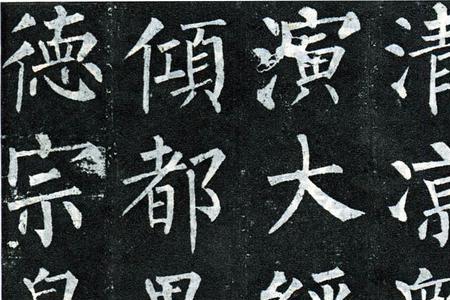 清涼
演大經
傾都畢
德宗皇